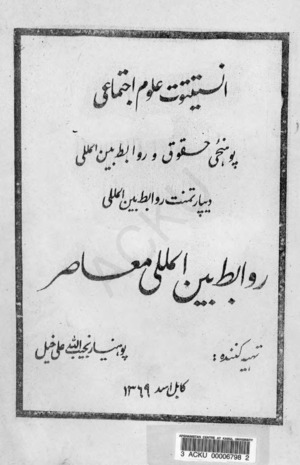 انستیتوت علوم اجتماعی
پوهنځی حقوق و روابط بین المللی
دیپارتمنت روابط بین المللی
روابط بین المللی معاصر
تهیه کننده: پوهنیار نجیب الله علی خیل
کابل اسد ۱۳۶۹
ACKU
3 ACKU 00006798 2